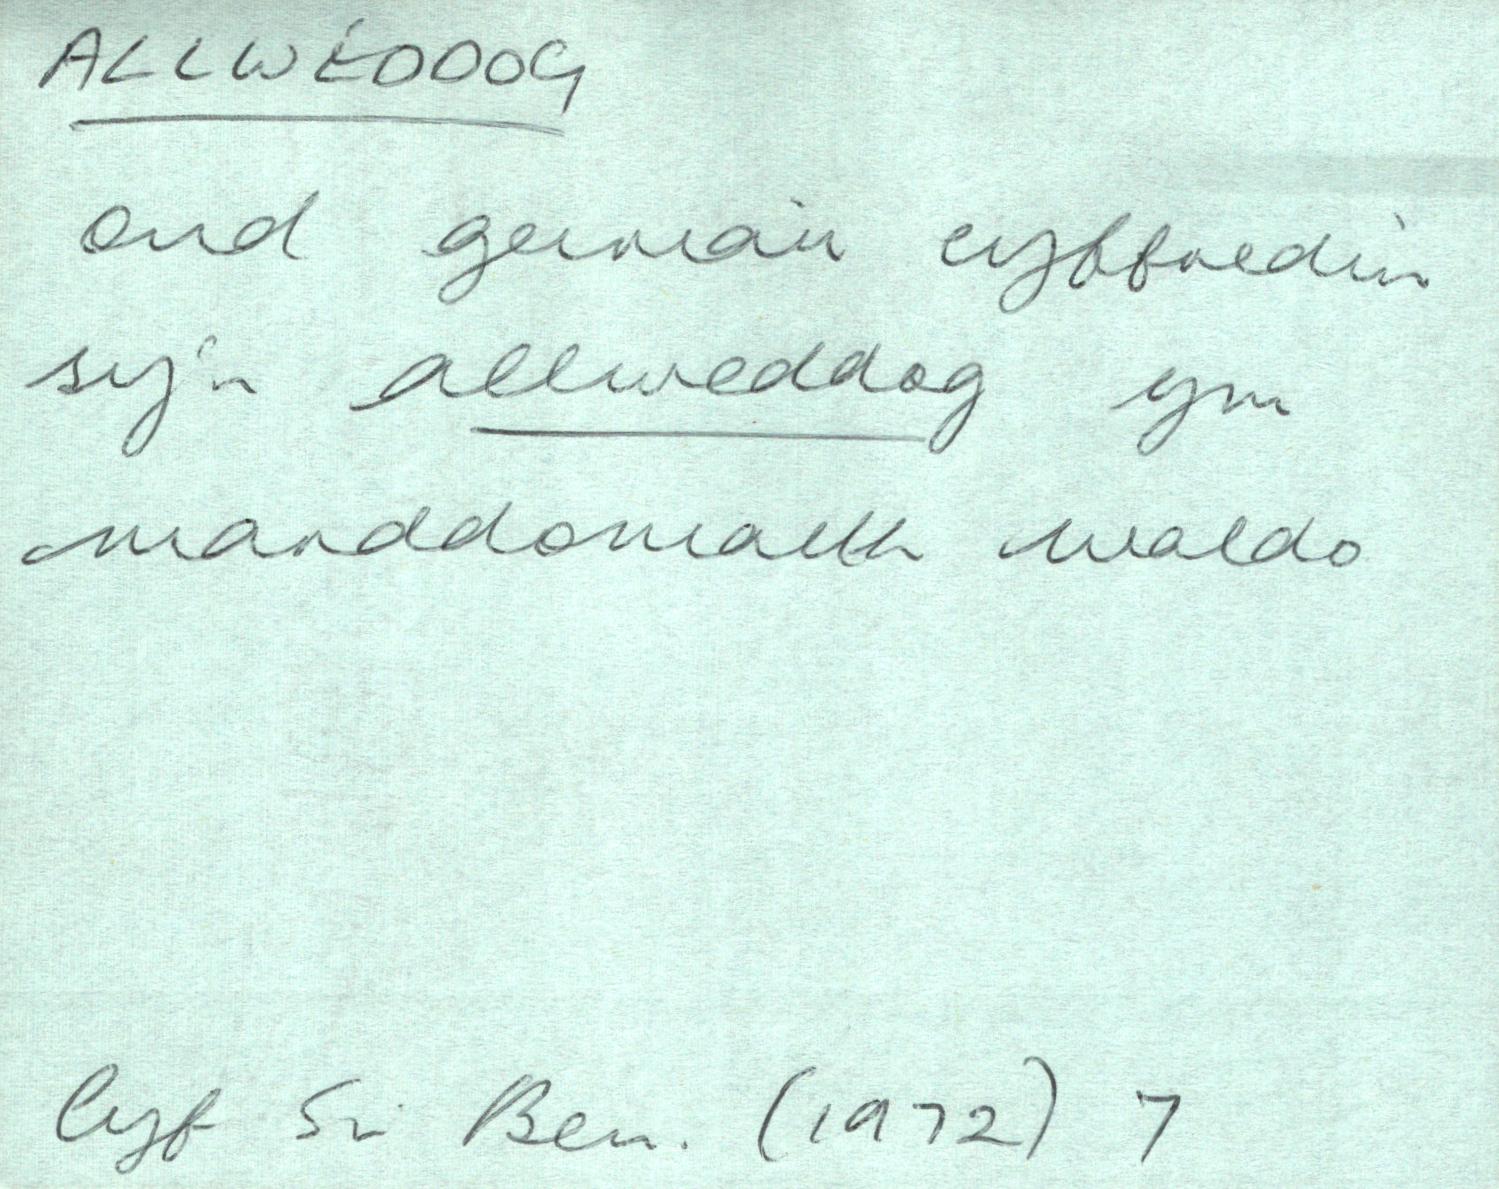 ALLWEDDOG
ond geiriau cyffredin
sy'n allweddog ym
marddoniaeth Waldo
Cyf Sir Ben. (1972) 7